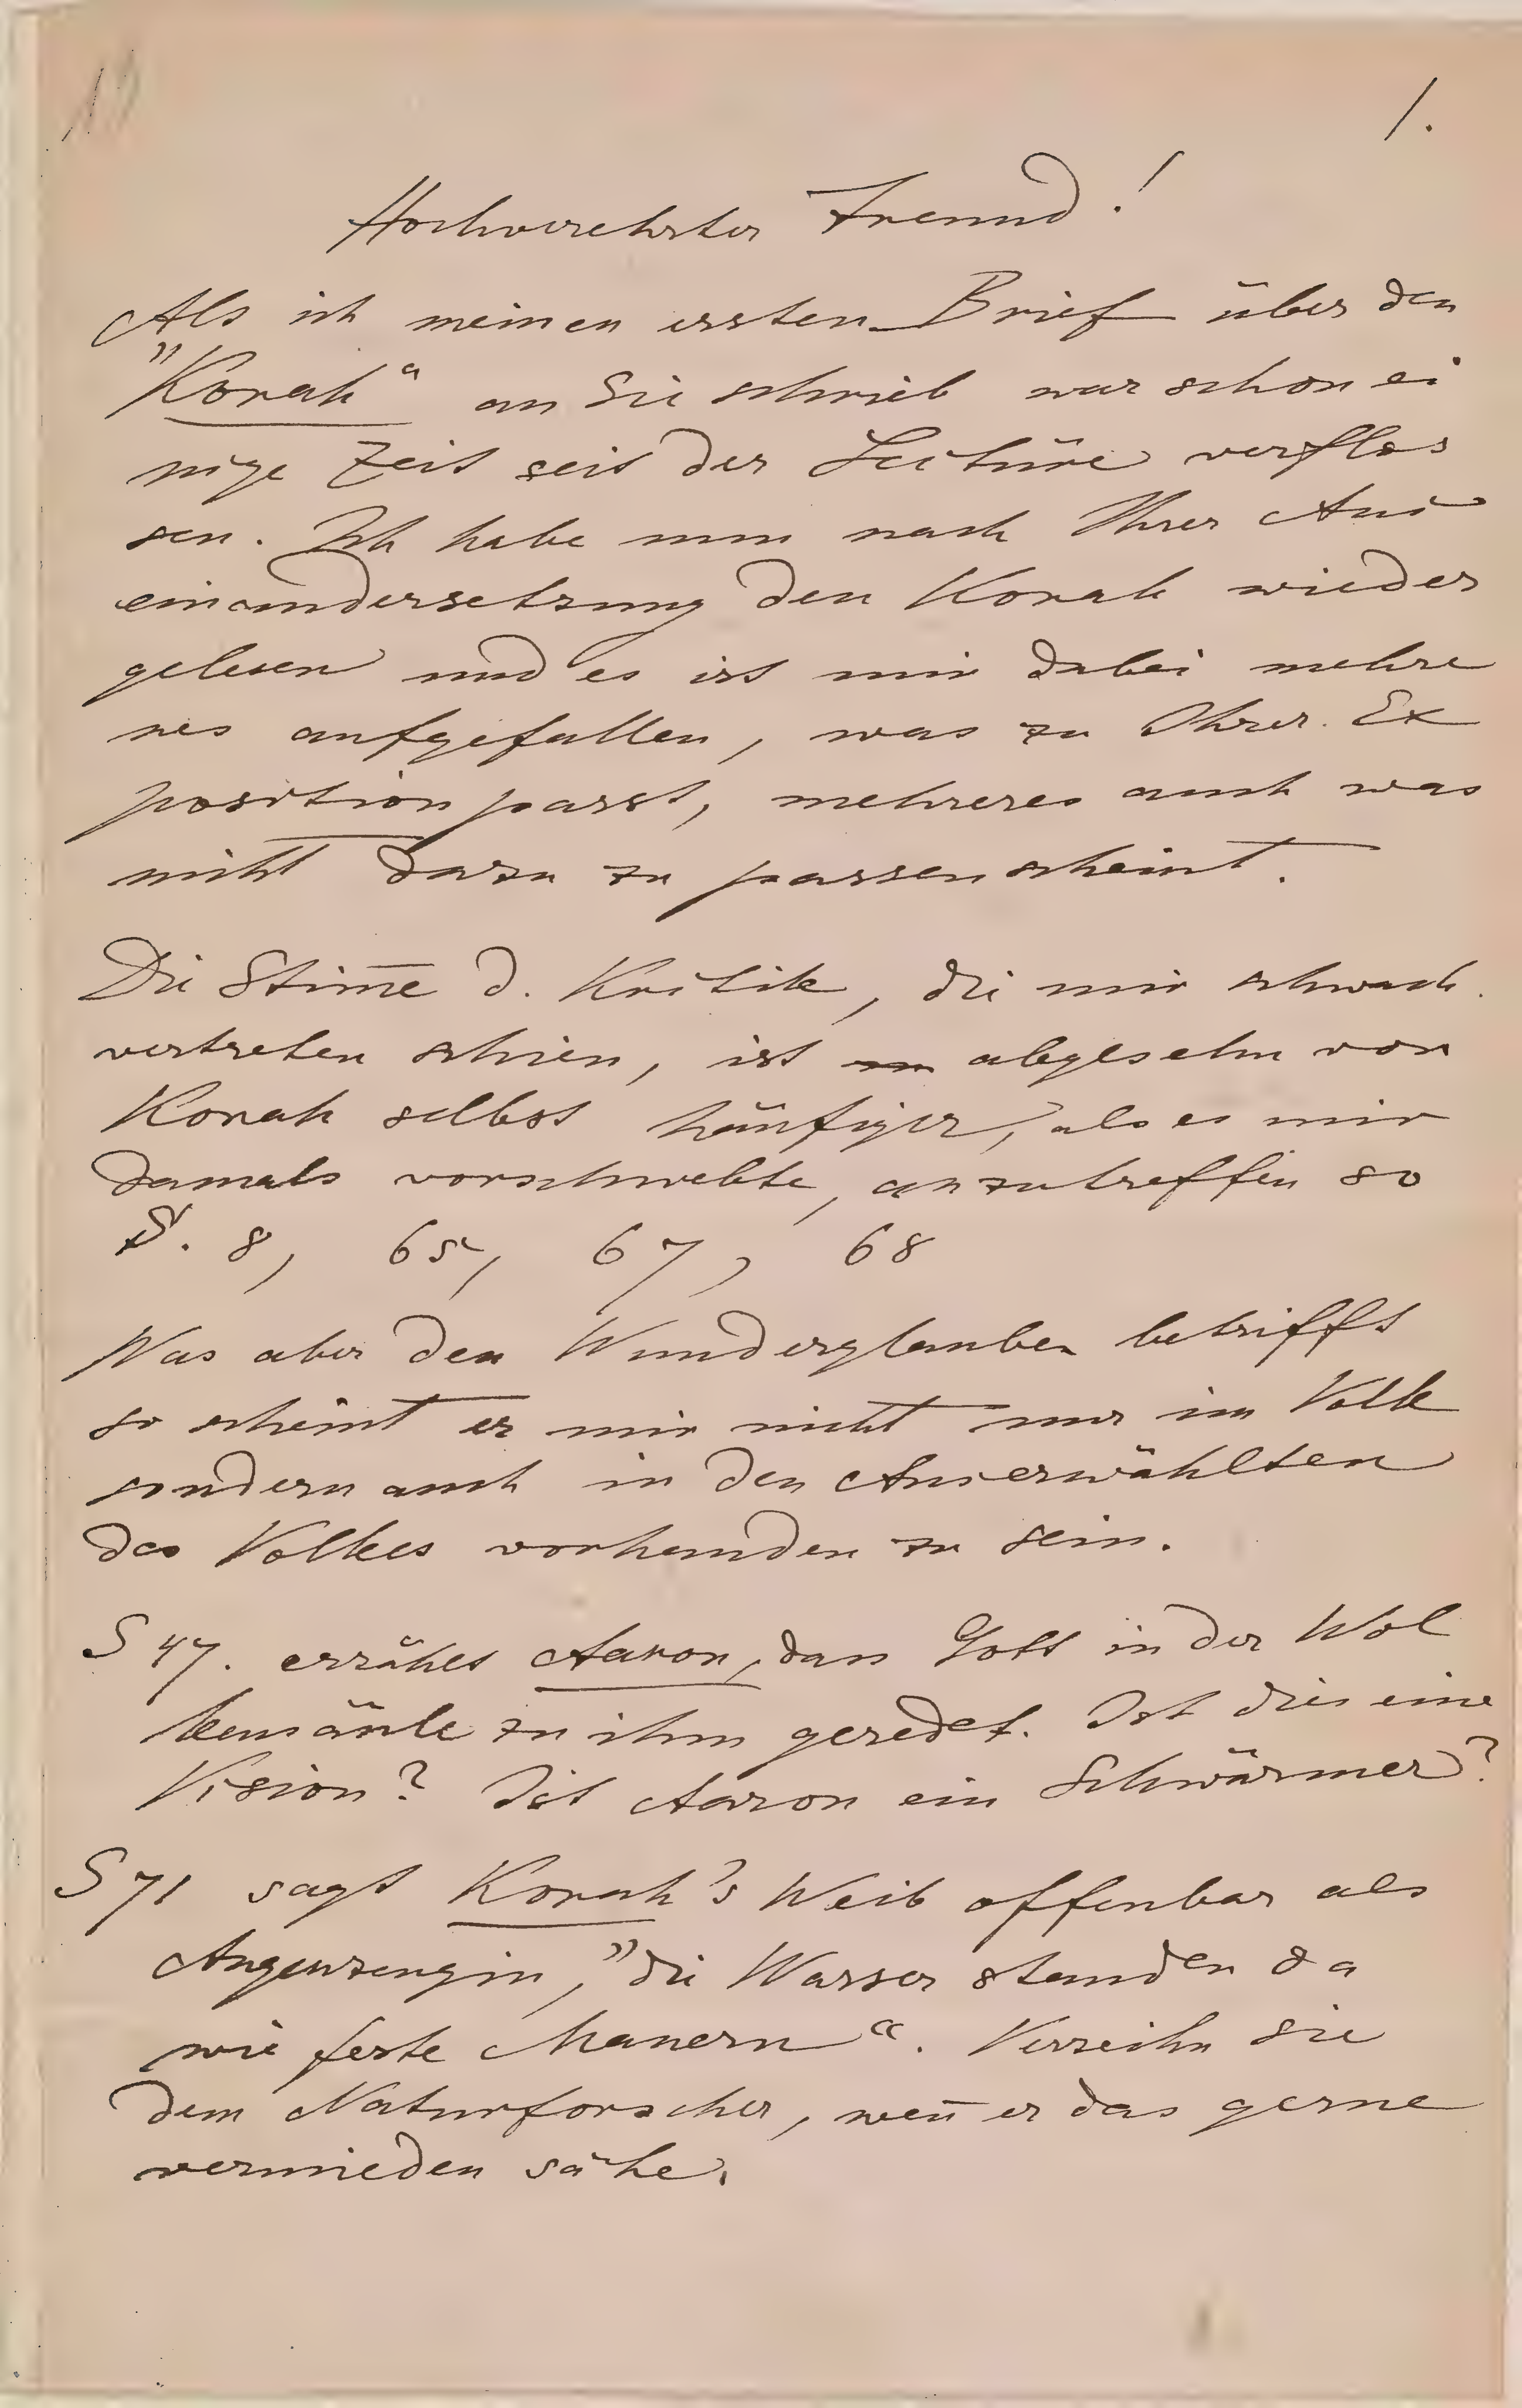 1.
Hochverehrter Freund!
Als ich meinen ersten Brief über den
"Korah" an Sie schrieb war schon ei
nige Zeit seit der Lectüre verflos
sen. Ich habe nun nach Ihrer Aus
einandersetzung den Korah wieder
gelesen und es ist mir dabei mehre
res aufgefallen, was zu Ihrer Ex
position passt, mehreres auch was
nicht dazu zu passen scheint.
Die Stim̄e d. Kritik, die mir schwach
vertreten schien, ist abgesehn von
Korah selbst häufiger, als es mir
damals vorschwebte, anzutreffen so
S. 8, 65, 67, 68
Was aber den Wunderglauben betrifft
so scheint er mir nicht nur im Volk
sondern auch in den Auserwählten
des Volkes vorhanden zu sein.
S 47. erzählt Aaron, dass Gott in der Wol
kensäule zu ihm geredet. Ist dies eine
Vision? Ist Aaron ein Schwärmer?
S 71 sagt Korah's Weib offenbar als
Augenzeugin, "die Wasser standen da
wie feste Mauern". Verzeihn Sie
dem Naturforscher, wen̄ er das gerne
vermieden sähe.